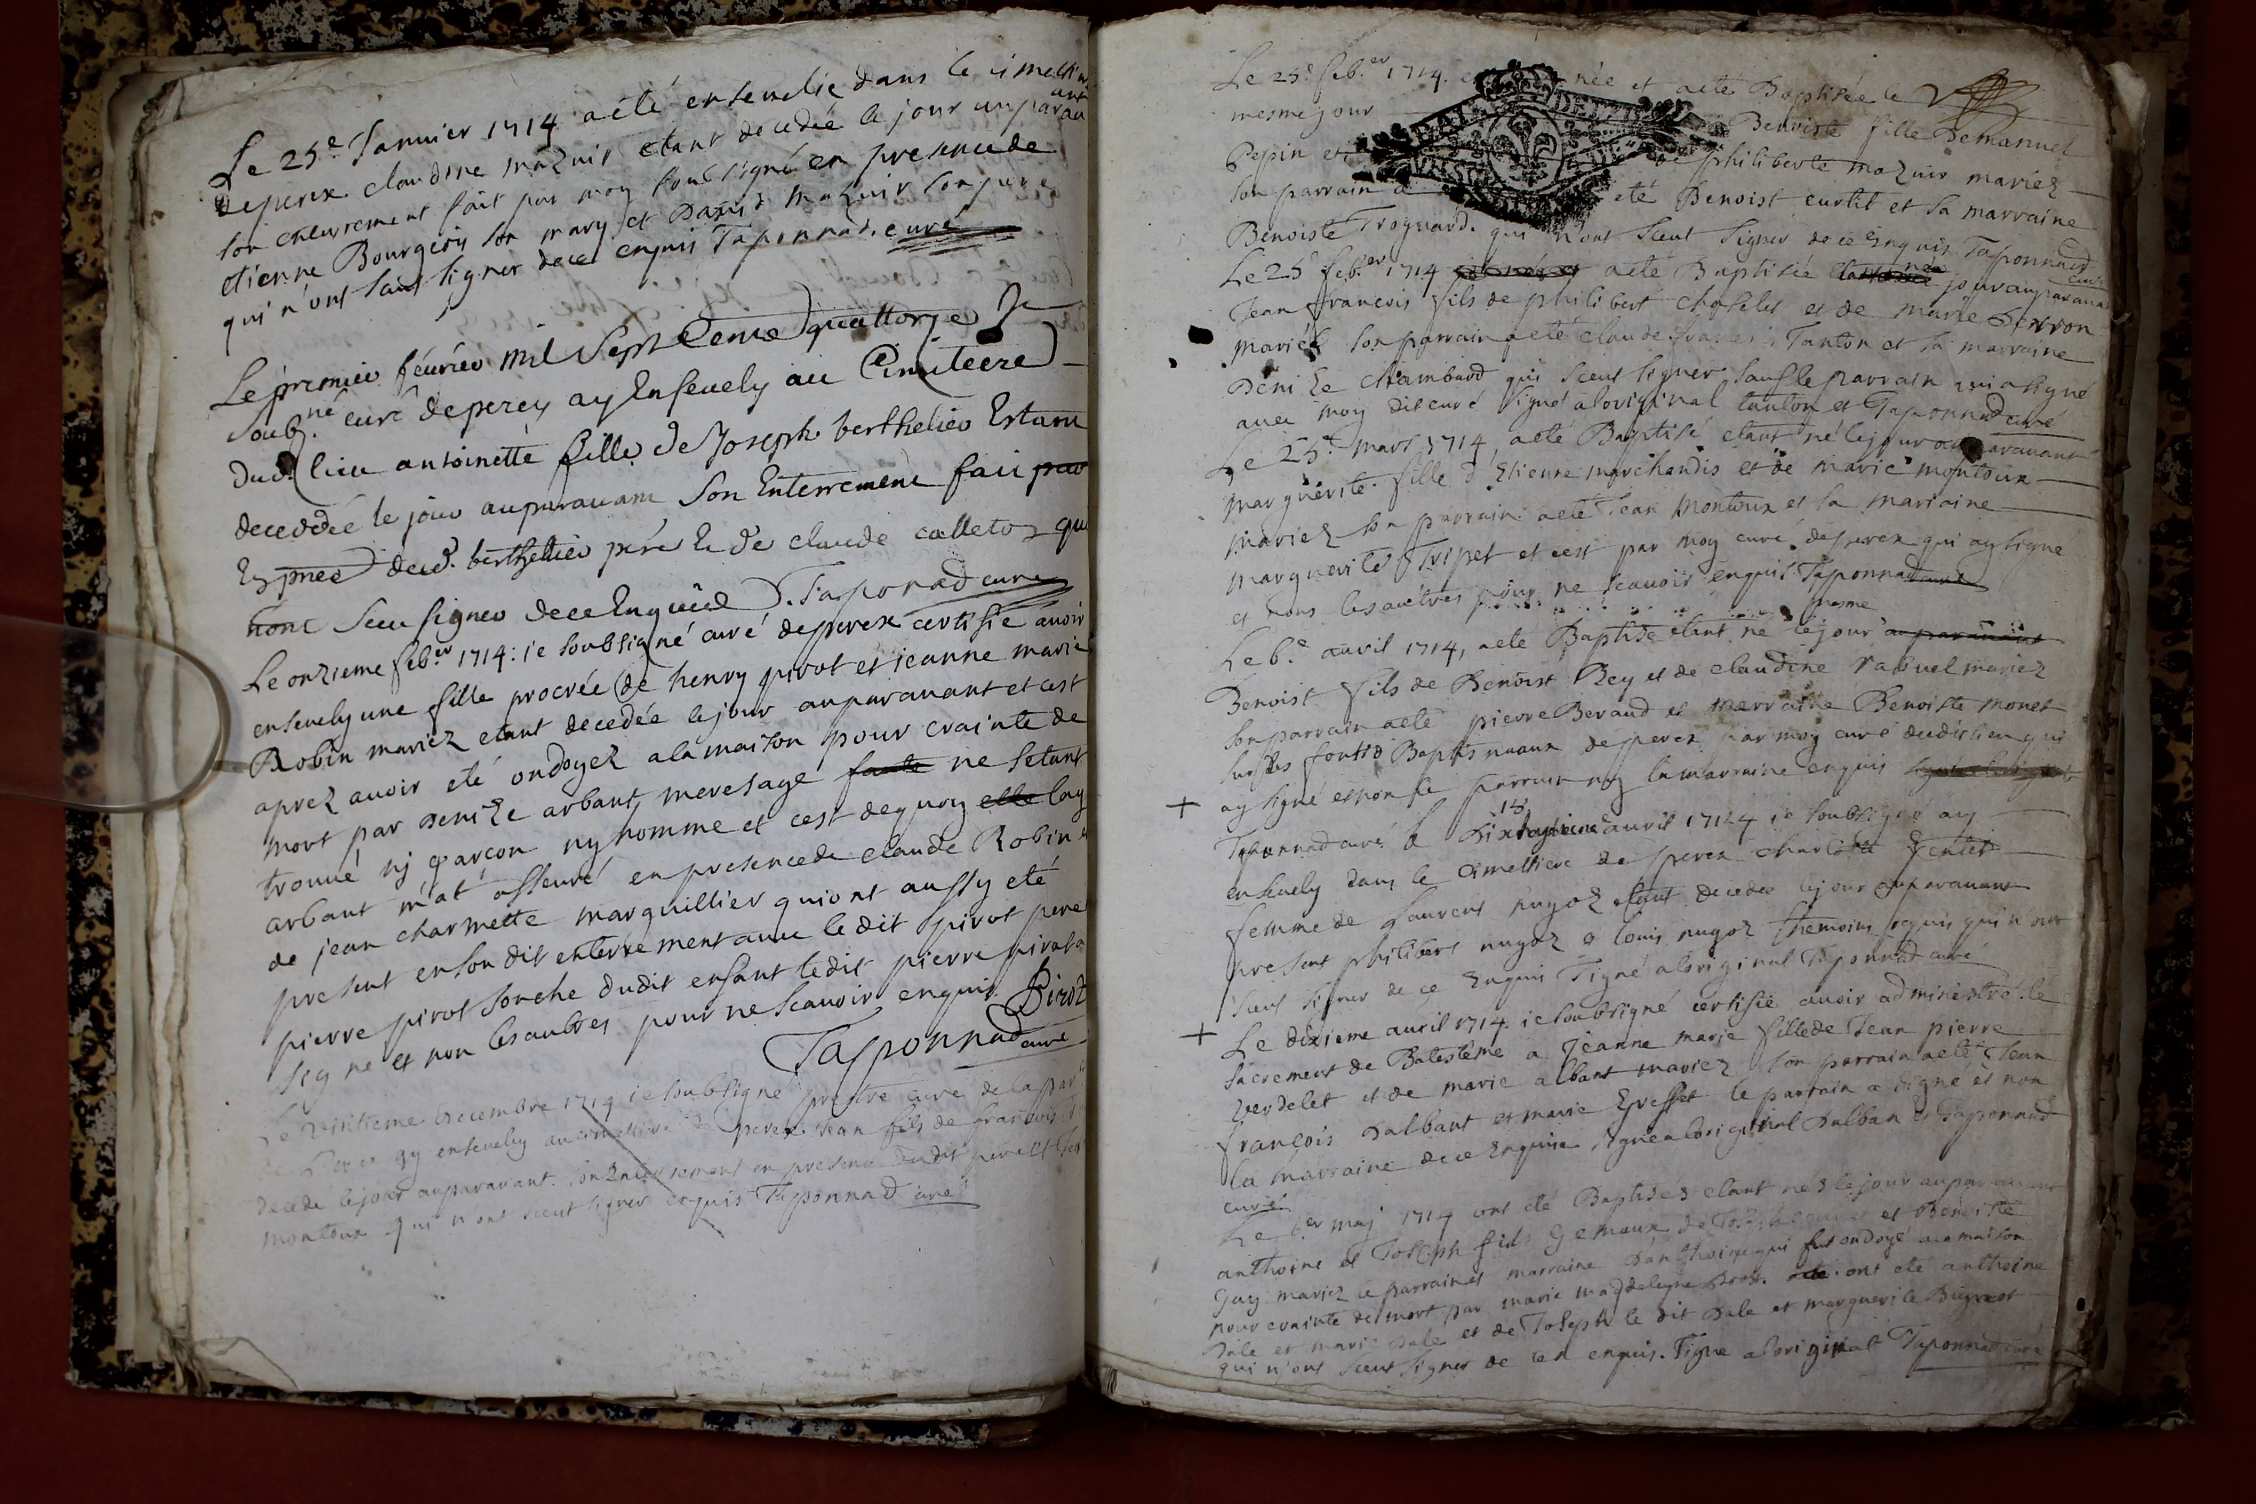 Le 25e Januier 1714 a eté enseuelie dans le cimettier
de perex claudine mazuir etant decedée le jour auparauant
son enterrement fait par moy soubsigné en presence de
etienne Bourgeois son mary et Mazuir son pere
qui n'ont sceut signer de ce enquis Taponnad. curé
Le premier féurier mil Sept Cents quattorze Je
Soubz.né curé de perex ay Enseuely au Cimiteere
dud. lieu antoinette fille de Joseph berthelier Estant
decedée le jour auparauant Son Enterrement fait par
En pnce dud. berthelier pére & de claude calletor qui
nont sceu signer de ce Enquis. Taponad curé
Le onzieme feb.er 1714: ie soubsigné curé de perex certifie auoir
enseuely une fille procrée de henry pirot et jeanne marie
Robin mariez etant decedée le jour auparauant et cest
aprez auoir eté ondoyez a la maison pour crainte de
mort par denize arbant meresage faute ne setant
trouué nj garçon ny homme et cest de quoy elle lay
arbant m'at asseuré en presence de claude Robin
de jean charmette marguillier qui ont aussy eté
present en son dit enterrement auec le dit pirot pere
pierre pirot dudit enfant ledit pierre pirot a
signe et non les autres pour ne scauoir enquis. Pirot
Taponnad curé
Le vintieme decembre 1714 ie soubsigné prestre curé de la par
de Perex ay enseuely au cimettiere de perex Jean fils de francois
decedé le jour auparauant. son enterrement en presence dudit pere et
montoux qui n'ont sceut signer enquis Taponnad curé
Le 25e feb.er 1714. née et a eté Baptisée le
mesme jour Benoiste fille Demanuel
Pepin et philiberte mazuir mariez
son parrain a eté Benoist curtit et sa marraine
Benoiste Troquard. qui n'ont sceut signer de ce enquis Taponnad
curé
Le 25e feb.er 1714 a eté Baptisée née jour auparauant
Jean francois fils de philibert chaselet et de marie Perron
mariéz son parrain a eté claude francois Tanton et sa marraine
Denize chambard qui sceut signer sauf le parrain qui a signé
auec moy dit curé signet a loriginal tanton et Taponnad curé
Le 25e mars 1714, a eté Baptisé etant né le jour auparauant
marguerite fille d'Etienne marchandis et de marie montoux
mariez son parrain a eté Jean Montoux et sa marraine
marguerite Tripet et cest par moy curé de perex qui ay signé
et nous les autres pour ne scauoir enquis Taponnad curé
Le 6.e auril 1714, a eté Baptisé etant né le jour mesme auparauant
Benoist fils de Benoist Rey et de claudine rabuel mariez
son parrain a eté pierre Beraud et marraine Benoiste monet
sur les fontts Baptismaux de perex par moy curé dudit lieu qui
ay signé et non le parrain ny la marraine enquis
Taponnad curé Le Dixhuitieme 18 auril 1714 ie soubsigné ay
enseuely dans le cimettiere de perex charlotte
femme de Laurent nugoz etant decedée le jour auparauant
present philibert nugoz & louis nugoz themoins requis qui n'ont
sceut signer de ce Enquis Signé a loriginal Taponnad curé
Le dixieme auril 1714. ie soubsigné certifie auoir administré le
sacrement de Bateteme a Jeanne marie fille de Jean pierre
verdelet et de marie albant mariez son parrain a eté Jean
françois Dalbant et marie Greffet le parrain a signé et non
la marraine de ce Enquise signé a loriginal Dalban et Taponnad
curé
Le 6.er maj 1714 ont eté Baptisés etant nés le jour auparauant
anthoine et Joseph fils gemaux de Joseph et Benoiste
Guy mariez le parrain et marraine Danthoine qui fut ondoyé a la maison
pour crainte de mort par marie magdeleyne Dros. ont eté anthoine
Dale et marie Dale et de Joseph le dit Dale et marguerite Buyret
qui n'ont sceut signer de ce enquis. Signe a loriginal Taponnad curé